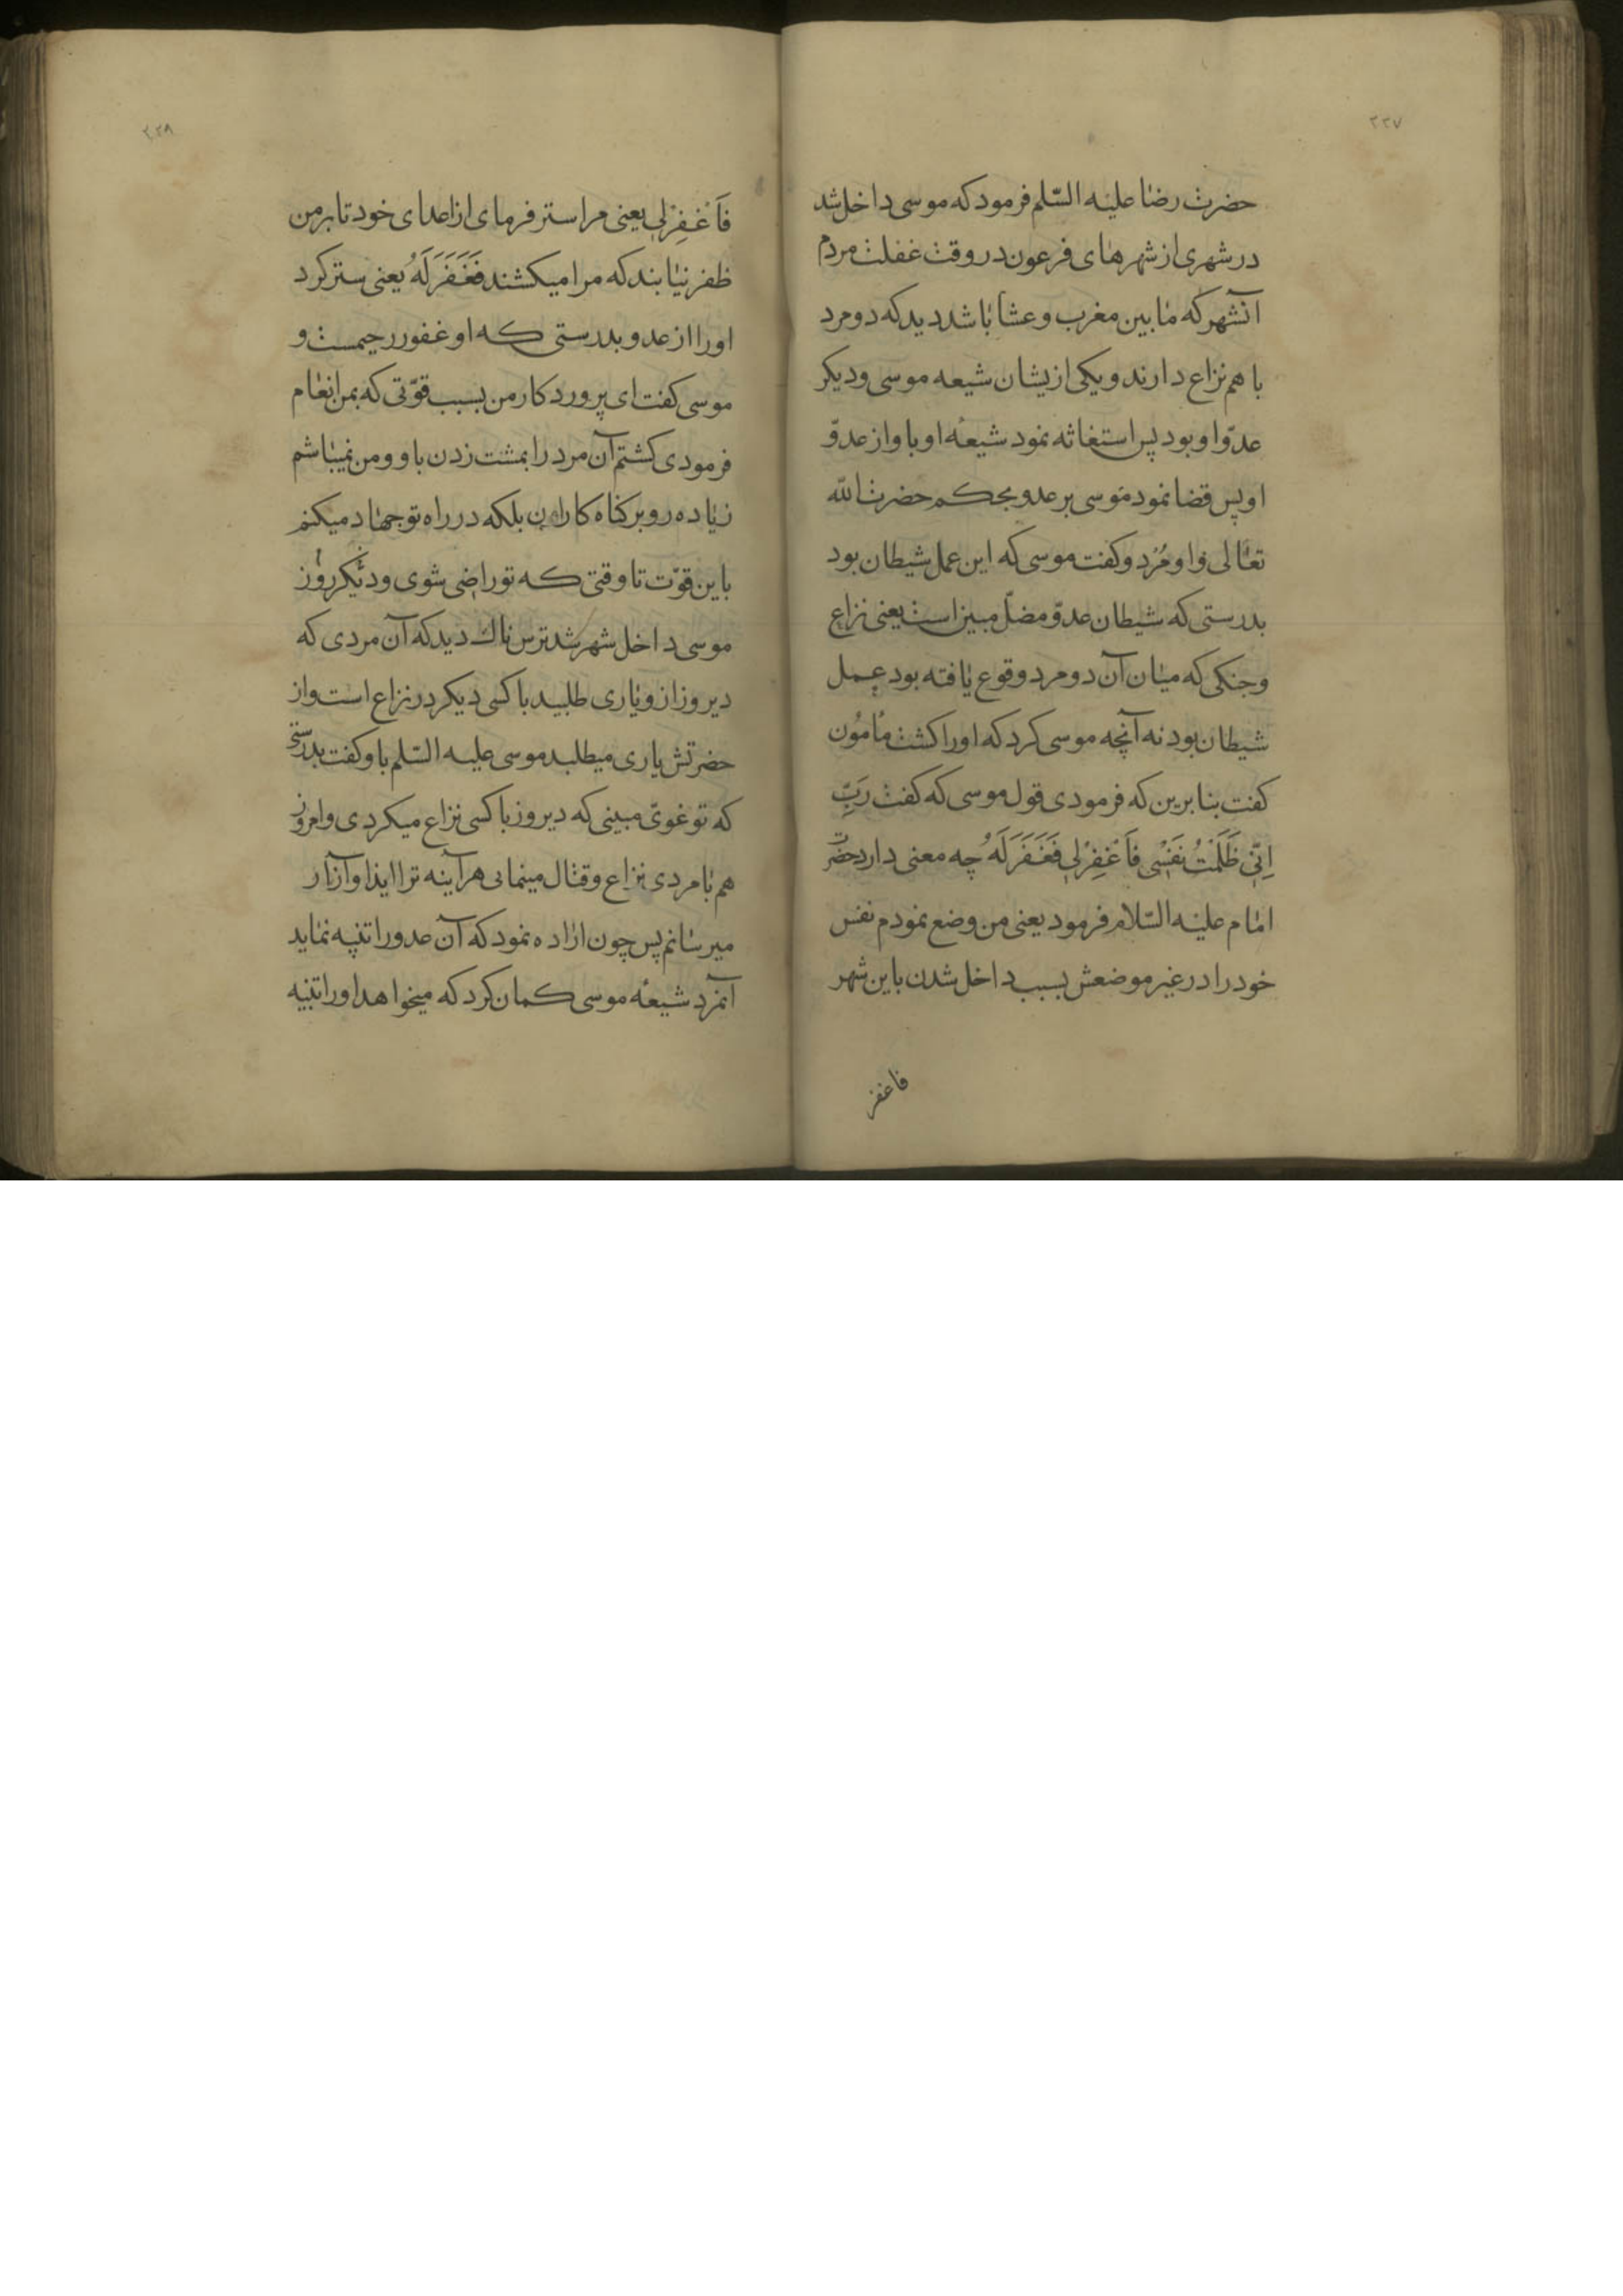 ۲۲۷
حضرت رضا علیه السّلم فرمود که موسی داخل شد
در شهری از شهرهای فرعون در وقت غفلت مردم
آنشهر که مابین مغرب و عشا باشد دید که دو مرد
با هم نزاع دارند و یکی ازیشان شیعه موسی و دیکر
عدوّ او بود پس استغاثه نمود شیعهٔ او باو از عدوّ
او پس قضا نمود موسی بر عدو بحکم حضرت الله
تعالی و او مُرد و کفت موسی که این عمل شیطان بود
بدرستی که شیطان عدوّ مضلّ مبین است یعنی نزاع
و جنکی که میان آن دو مرد وقوع یافته بود عمل
شیطان بود نه آنچه موسی کرد که او را کشت مأمُون
کفت بنا برین که فرمودی قول موسی که کفت رَبِّ
اِنّی ظَلَمْتُ نَفْسی فَاغْفِرْلی فَغَفَرَ لَهُ چه معنی دارد حضرت
امام علیه السّلام فرمود یعنی من وضع نمودم نفس
خود را در غیر موضعش بسبب داخل شدن باین شهر
فاغفر
۲۲۸
فَاغْفِرْلی یعنی مرا ستر فرمای از اعدای خود تا بر من
ظفر نیابند که مرا میکشند فَغَفَرَ لَهُ یعنی ستر کرد
او را از عدو بدرستی که او غفور رحیمست و
موسی کفت ای پروردکار من بسبب قوّتی که بمن انعام
فرمودی کشتم آن مرد را بمشت زدن باو و من نمیباشم
زیاده رو بر کناه کاران بلکه در راه تو جهاد میکنم
باین قوّت تا وقتی که تو راضی شوی و دیکر روز
موسی داخل شهر شد ترس ناك دید که آن مردی که
دیروز ازو یاری طلبید با کسی دیکر در نزاع است و از
حضرتش یاری میطلبد موسی علیه السّلم باو کفت بدرستی
که تو غویّ مبینی که دیروز با کسی نزاع میکردی و امروز
هم با مردی نزاع و قتال مینمایی هرآینه ترا ایذا و آزار
میرسانم پس چون اراده نمود که آن عدو را تنبیه نماید
آنمرد شیعهٔ موسی کمان کرد که میخواهد او را تنبیه